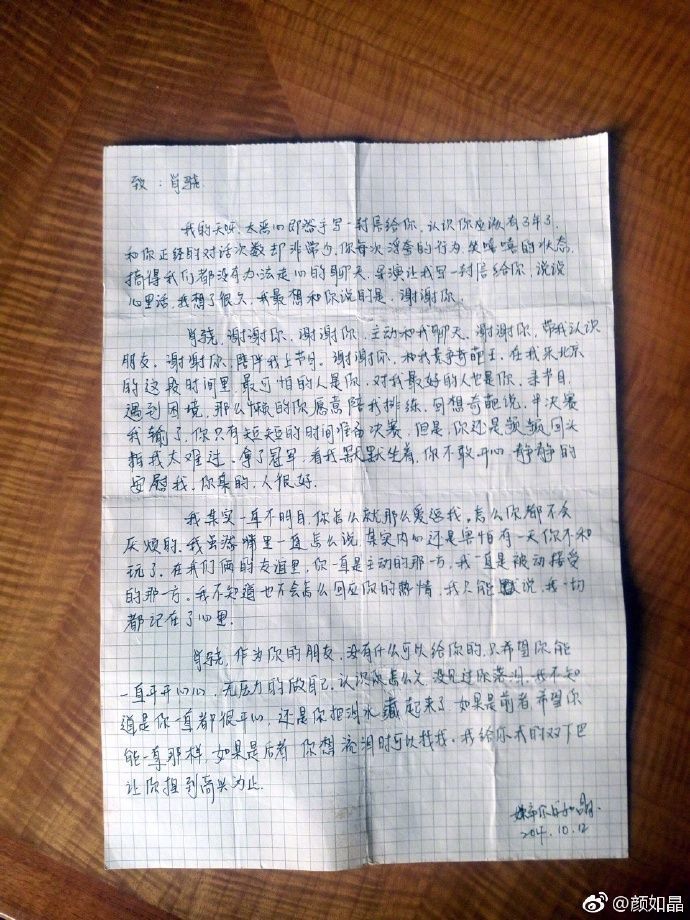 致：肖骁
我的天呀，太恶心即将手写一封信给你，认识你应该有3年了，
和你正经的对话次数却非常少，你每次浮夸的行为笑嘻嘻的状态，
搞得我们都没有办法走心的聊天，导演让我写一封信给你，说说
心里话，我想了很久，我最想和你说的是，谢谢你，
肖骁，谢谢你，谢谢你，主动和我聊天，谢谢你，带我认识
朋友，谢谢你，陪伴我上节目，谢谢你，和我竞争奇葩王，在我来北京
的这段时间里最可怕的人是你，对我最好的人也是你，录节目
遇到困境，那么懒的你愿意陪我排练，回想奇葩说，半决赛
我输了，你只有短短的时间准备决赛，但是，你还是频频回头
怕我太难过，拿了冠军，看我默默坐着，你不敢开心静静的
安慰我，你真的，人很好，
我其实一直不明白，你怎么就那么爱逗我，怎么你都不会
灰烦的，我虽然嘴里一直怎么说，其实内心还是害怕有一天你不和
玩了，在我们俩的友谊里，你一直是主动的那一方，我一直是被动接受
的那一方。我不知道也不会怎么回应你的热情，我只能说，我一切
都记在了心里，
肖骁，作为你的朋友，没有什么可以给你的，只希望你能
一直开开心心，无压力的做自己，认识你怎么久，没见过你落泪，我不知
道是你一直都很开心，还是你把泪水藏起来了，如果是前者，希望你
能一直那样，如果是后者，你想流泪时可以找我，我给你我的双下巴
让你捏到高兴为止。
如晶
2014.10.12
颜如晶